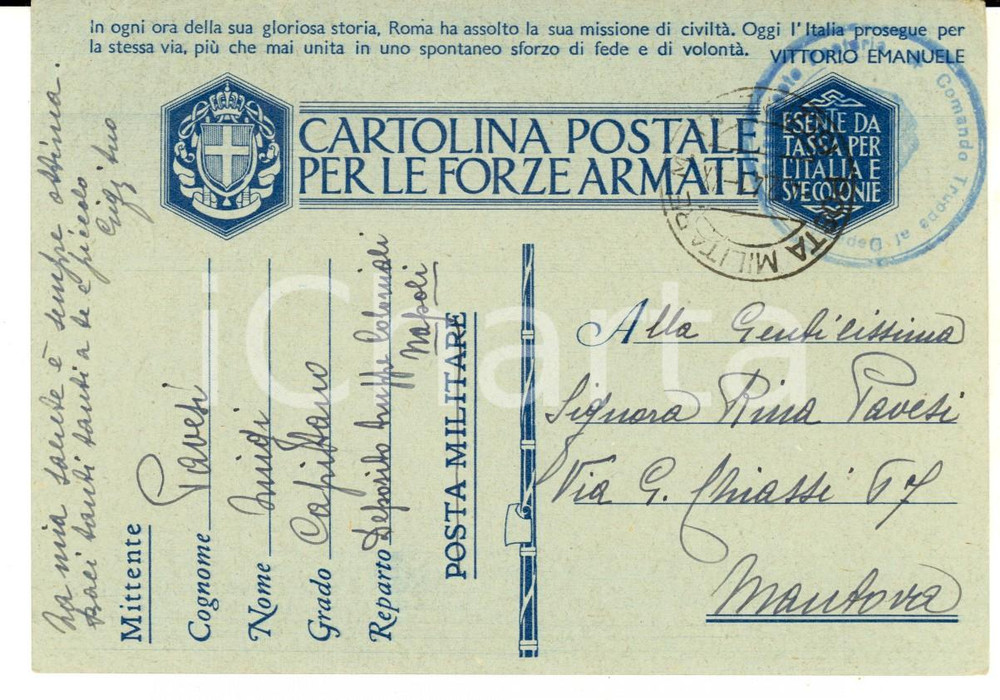 In ogni ora della sua gloriosa storia, Roma ha assolto la sua missione di civiltà. Oggi l'Italia prosegue per
la stessa via, più che mai unita in uno spontaneo sforzo di fede e di volontà. VITTORIO EMANUELE
CARTOLINA POSTALE
PER LE FORZE ARMATE
ESENTE DA
TASSA PER
L'ITALIA E
SVE COLONIE
POSTA MILITARE
Comando Truppe al Deposito
Alla Gentilissima
Signora Rina Pavesi
Via G. Chiassi 67
Mantova
La mia salute è sempre ottima.
Baci tanti tanti a te e piccolo
Gigi tuo
Mittente
Cognome Pavesi
Nome Luigi
Grado Capitano
Reparto Deposito truppe Coloniali
Napoli
POSTA MILITARE
iCharta